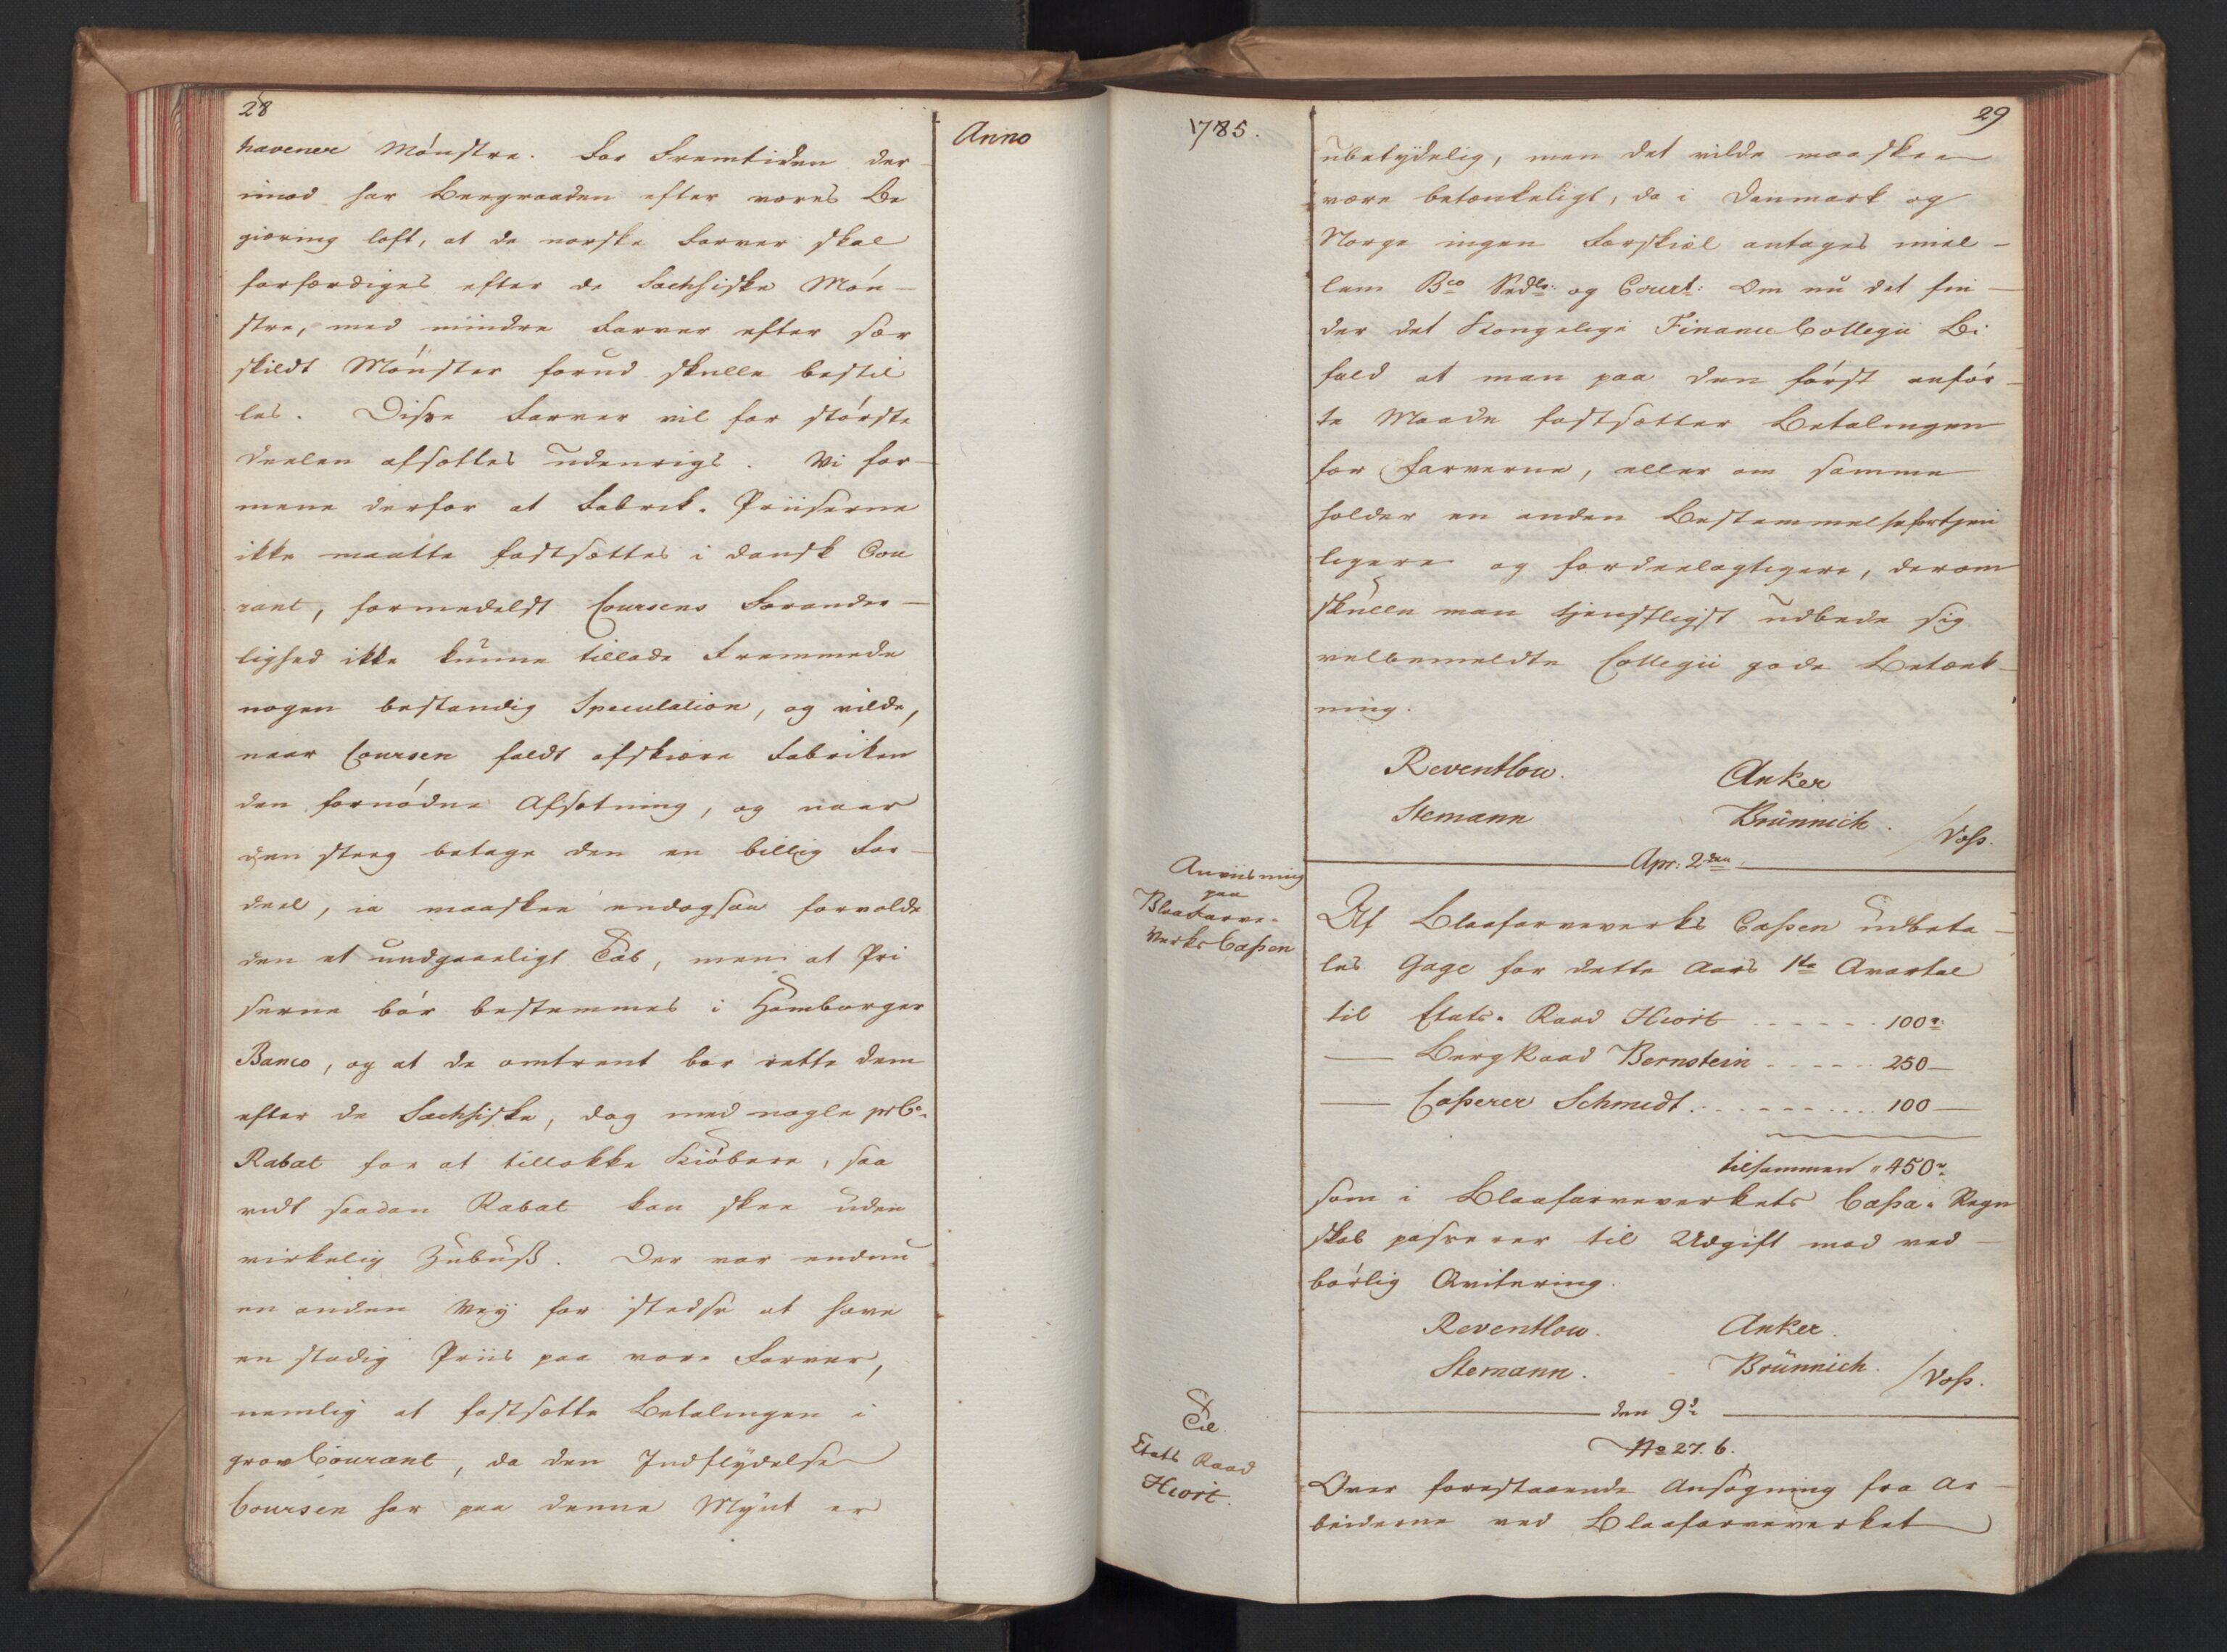 28
Anno
havener Mönstre. For Fremtiden der-
imod har Bergraaden efter vores Be
giæring loft, at de norske Farver skal
forfærdiges efter de Sachsiske Mön-
stre, med mindre Farver efter sær
skildt Mönster forud skulle bestil
les. Disse Farver vil for störste
Deelen afsættes udenrigs. Vi for-
mene derfor at Fabrik-Priiserne
ikke maatte fastsættes i dansk Cou
rant, formedelst Coursens Forander-
lighed ikke kunne tillade Fremmede
nogen bestandig Speculation, og vilde,
naar Coursen faldt afskiære Fabriken
den fornödne Afsætning, og naar
den steeg betage den en billig For-
deel, ia maaskee endogsaa forvolde
den et undgaaeligt Tab, men at Pri
serne bör bestemmes i Hamborger
Banco, og at de omtrent bör rette dem
efter de Sachsiske, dog med nogle prCt
Rabat for at tillokke Kiöbere, saa
vidt saadan Rabat kan skee uden
virkelig Zubuß. Der var endnu
en anden Vey for stedse at have
en stadig Priis paa vore Farver,
nemlig at fastsætte Betalingen i
grov Courant, da den Indflydelse
Coursen har paa denne Mynt er
1785.
29
ubetydelig, men det vilde maaskee
være betænkeligt, da i Danmark og
Norge ingen Forskiæl antages miel-
lem Bco Sedlr: og Court: Om nu det fin-
der det Kongelige Finance Collegii Bi
fald at man paa den först anför-
te Maade fastsætter Betalingen
for Farverne, eller om samme
holder en anden Bestemmelse fortjen
ligere og fordeelagtigere, derom
skulle man tjenstligst udbede sig
velbemeldte Collegii gode Betænk-
ning.
Reventlow. Anker
Stemann Brünnich. /Voss.
Apr: 2den
Anviisning
paa
Blaafarve-
Verks Cassen
Af Blaafarveverks Cassen udbeta-
les Gage for dette Aars 1te Qvartal
til Etats-Raad Hiort ...... 100r
— BergRaad Bernstein ..... 250 —
— Casserer Schmidt .......... 100 —
tilsammen 450r
som i Blaafarveverkets Cassa-Regn
skab passerer til Udgift mod ved-
börlig Qvitering.
Reventlow. Anker.
Stemann. Brünnich. /Voss.
den 9de
No 27. b.
Til
Etats Raad
Hiort.
Over forestaaende Ansögning fra Ar-
beiderne ved Blaafarveverket